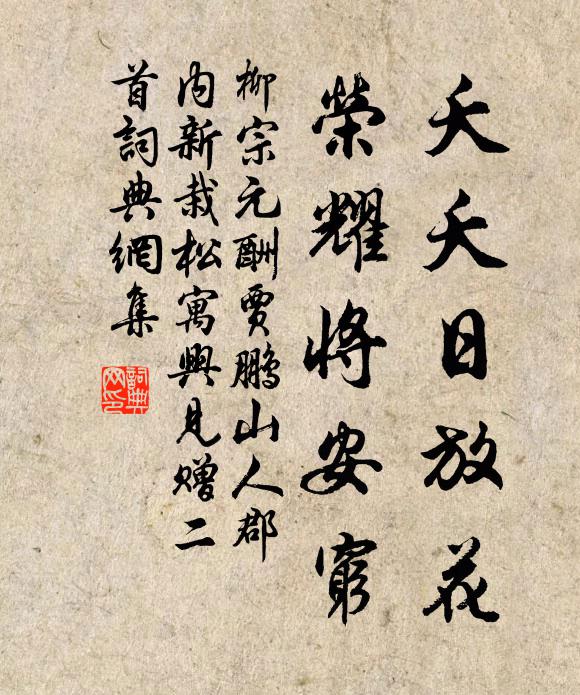 夭夭日放花
榮耀將安窮
柳宗元酬賈鵬山人郡
内新栽松寓興見贈二
首詞典網集
詞典
网印